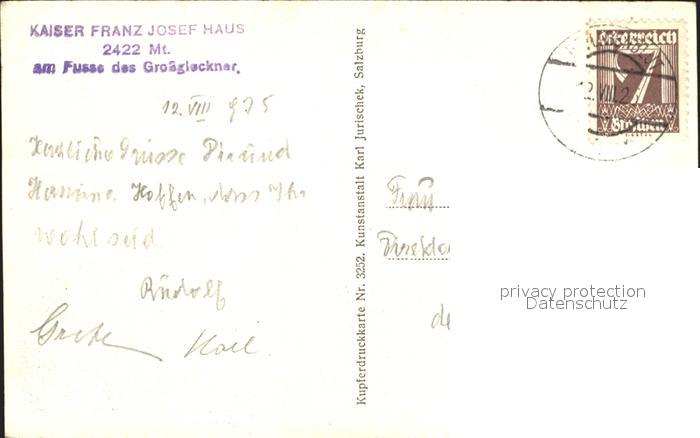 KAISER FRANZ JOSEF HAUS
2422 Mt.
am Fusse des Großglockner.
12. VIII 925
Herzliche Grüsse
Hoffen, dass Ihr
wohl seid
Rudolf
Grete
Kupferdruckkarte Nr. 3252. Kunstanstalt Karl Jurischek, Salzburg
Österreich
7
Groschen
12.VIII.2
Frau
privacy protection
Datenschutz